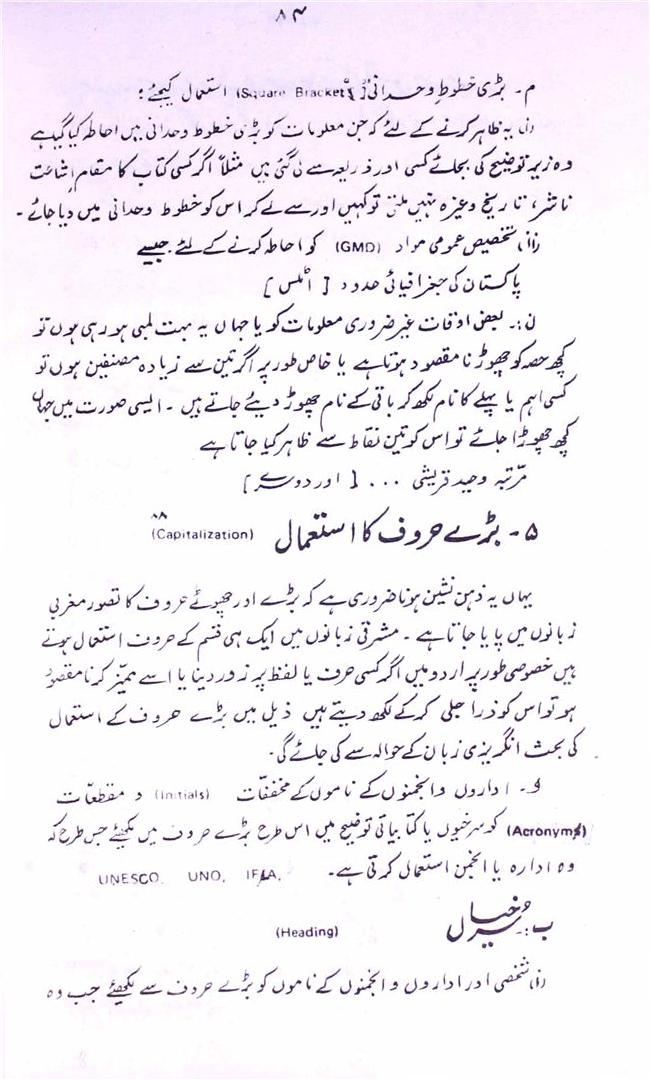 ۸۴
م۔ بڑی خطوط وحدانی [ ] (Square Bracket) استعمال کیجئے :
(i) یہ ظاہر کرنے کے لئے کہ جن معلومات کو بڑی خطوط وحدانی میں احاطہ کیا گیا ہے
وہ زیر توضیح کی بجائے کسی اور ذریعہ سے لی گئی ہیں مثلاً اگر کسی کتاب کا مقام اشاعت
ناشر، تاریخ وغیرہ نہیں ملتی تو کہیں اور سے لے کر اس کو خطوط وحدانی میں دیا جائے۔
(ii) تخصیص عمومی مواد (GMD) کو احاطہ کرنے کے لئے جیسے
پاکستان کی جغرافیائی حدود [ اٹلس ]
ن:۔ بعض اوقات غیر ضروری معلومات کو یا جہاں یہ بہت لمبی ہو رہی ہوں تو
کچھ حصہ کو چھوڑنا مقصود ہوتا ہے یا خاص طور پر اگر تین سے زیادہ مصنفین ہوں تو
کسی اہم یا پہلے کا نام لکھ کر باقی کے نام چھوڑ دیئے جاتے ہیں ۔ ایسی صورت میں جہاں
کچھ چھوڑا جائے تو اس کو تین نقاط سے ظاہر کیا جاتا ہے
مرّتبہ وحید قریشی ... [ اور دوسرے ]
۵ ۔ بڑے حروف کا استعمال (Capitalization) ۸۸
یہاں یہ ذہن نشین ہونا ضروری ہے کہ بڑے اور چھوٹے حروف کا تصور مغربی
زبانوں میں پایا جاتا ہے ۔ مشرقی زبانوں میں ایک ہی قسم کے حروف استعمال ہوتے
ہیں خصوصی طور پر اردو میں اگر کسی حرف یا لفظ پر زور دینا یا اسے ممیّز کرنا مقصود
ہو تو اس کو ذرا جلی کر کے لکھ دیتے ہیں ذیل میں بڑے حروف کے استعمال
کی بحث انگریزی زبان کے حوالہ سے کی جائے گی۔
۔ اداروں و انجمنوں کے ناموں کے مخففّات (Initials) و مقطعّات
(Acronyms) کو سرخیوں یا کتابیاتی توضیح میں اس طرح بڑے حروف میں لکھیئے جس طرح کہ
وہ ادارہ یا انجمن استعمال کرتی ہے۔ UNESCO, UNO, IFLA,
ب:۔ سرخیاں (Heading)
(i) شخصی اور اداروں و انجمنوں کے ناموں کو بڑے حروف سے لکھیئے جب وہ